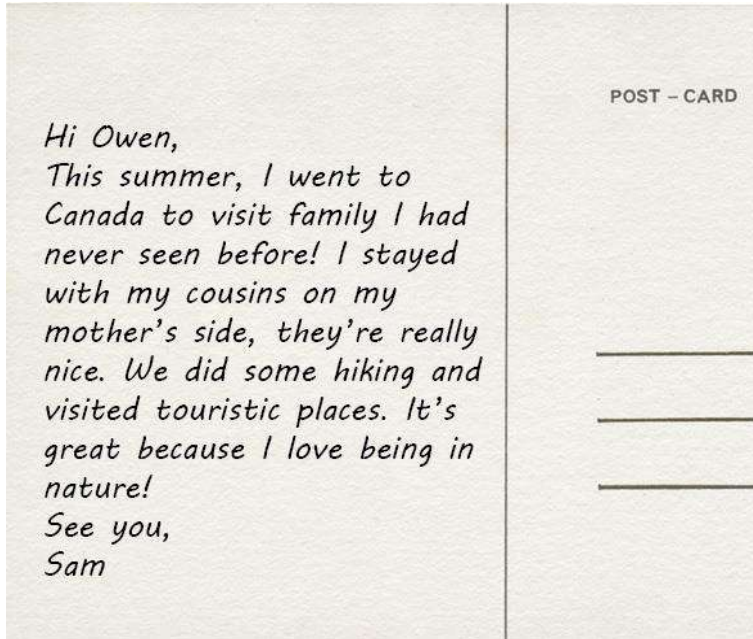 POST – CARD
Hi Owen,
This summer, I went to
Canada to visit family I had
never seen before! I stayed
with my cousins on my
mother's side, they're really
nice. We did some hiking and
visited touristic places. It's
great because I love being in
nature!
See you,
Sam